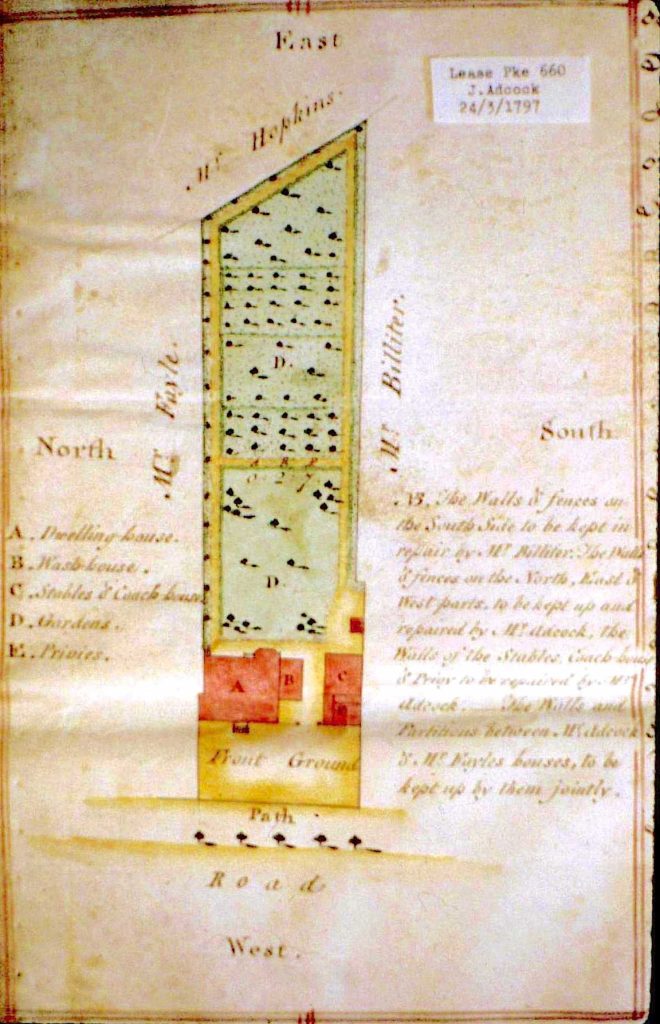 East
Lease Pke 660
J. Adcock
24/3/1797
Mr. Hopkins.
Mr. Fayle.
Mr. Billiter.
D.
North
South
A. Dwelling-house.
B. Wash-house.
C. Stables & Coach-house
D. Gardens.
E. Privies.
A R P
0 2
D.
NB. The Walls & fences on
the South Side to be kept in
repair by Mr. Billiter. The Walls
& fences on the North, East &
West parts, to be kept up and
repaired by Mr. Adcock, the
Walls of the Stables, Coach house
& Privy to be repaired by Mr.
Adcock. The Walls and
Partitions between Mr. Adcock
& Mr. Fayles houses, to be
kept up by them jointly.
A
B
C
Front Ground
Path
Road
West.